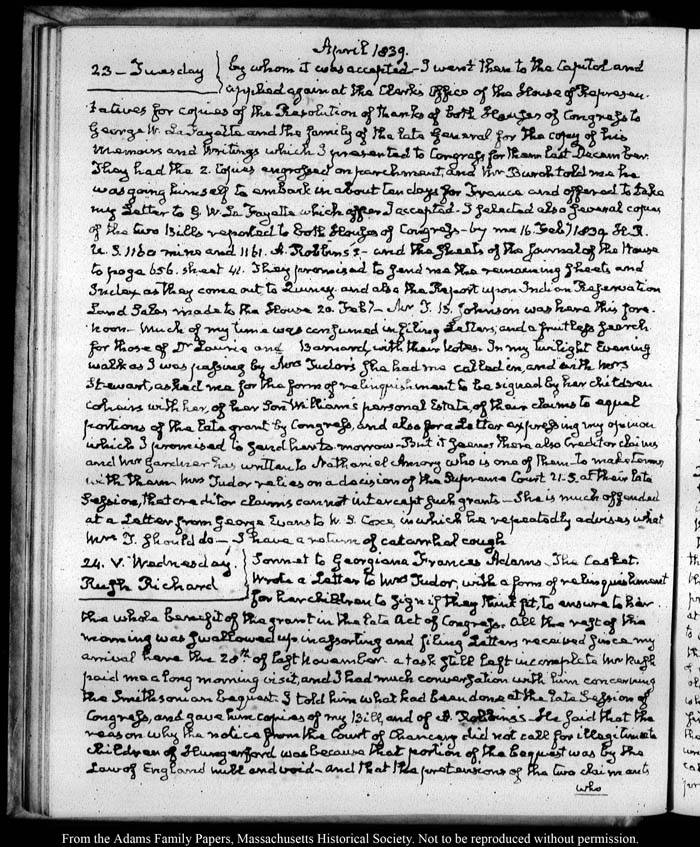 April 1839.
23 – Tuesday } by whom it was accepted – I went then to the Capitol and
applied again at the Clerk's Office of the House of Represen-
tatives for copies of the Resolution of thanks of both Houses of Congress to
George W. La Fayette and the family of the late General for the copy of his
Memoirs and Writings which I presented to Congress for them last December.
They had the 2. Copies engrossed on parchment, and Mr Burch told me he
was going himself to embark in about ten days for France and offered to take
my Letter to G. W. La Fayette which offer I accepted. I selected also several copies
of the two Bills reported to both Houses of Congress – by me 16. Feby 1839 H. R.
1160 mine and 1161. A. Robbins's – and the sheets of the Journal of the House
to page 656. sheet 41. They promised to send me the remaining sheets and
Index as they come out to Quincy and also the Report upon Indian Reservation
Land Sales made to the House 20. Feby – Mr T. B. Johnson was here this fore-
noon – Much of my time was consumed in filing Letters, and a fruitless search
for those of Dr Laurie and Barnard, with their Notes. In my twilight Evening
walk as I was passing by Mrs Tudor's she had me called in, and with Mrs
Stewart, asked me for the form of relinquishment to be signed by her children
coheirs with her, of her Son William's personal Estate, of their claims to equal
portions of the late grant by Congress, and also for a Letter expressing my opinion
which I promised to send her to-morrow – But it seems there also Creditor claims
and Mr Gardner has written to Nathaniel Amory who is one of them – to make terms
with them Mrs Tudor relies on a decision of the Supreme Court at their late
Session, that creditor claims cannot intercept such grants – She is much offended
at a Letter from George Evans to W. S. Coxe, in which he repeatedly advises what
Mrs T. should do – I have a return of catarrhal cough
24. V. Wednesday. } Sonnet to Georgiana Frances Adams – The Casket.
Rush Richard } Wrote a Letter to Mrs Tudor, with a form of relinquishment
for her children to sign if they think fit, to ensure to her
the whole benefit of the grant in the late Act of Congress. All the rest of the
morning was swallowed up in assorting and filing Letters received since my
arrival here the 28th of last November – a task still left incomplete Mr Rush
paid me a long morning visit, and I had much conversation with him concerning
the Smithsonian bequest. I told him what had been done at the late Session of
Congress, and gave him copies of my Bill, and of A. Robbins's – He said that the
reason why the notice from the Court of Chancery did not call for illegitimate
children of Hungerford was because that portion of the bequest was by the
Law of England null and void – and that the pretensions of the two claimants
who
From the Adams Family Papers, Massachusetts Historical Society. Not to be reproduced without permission.